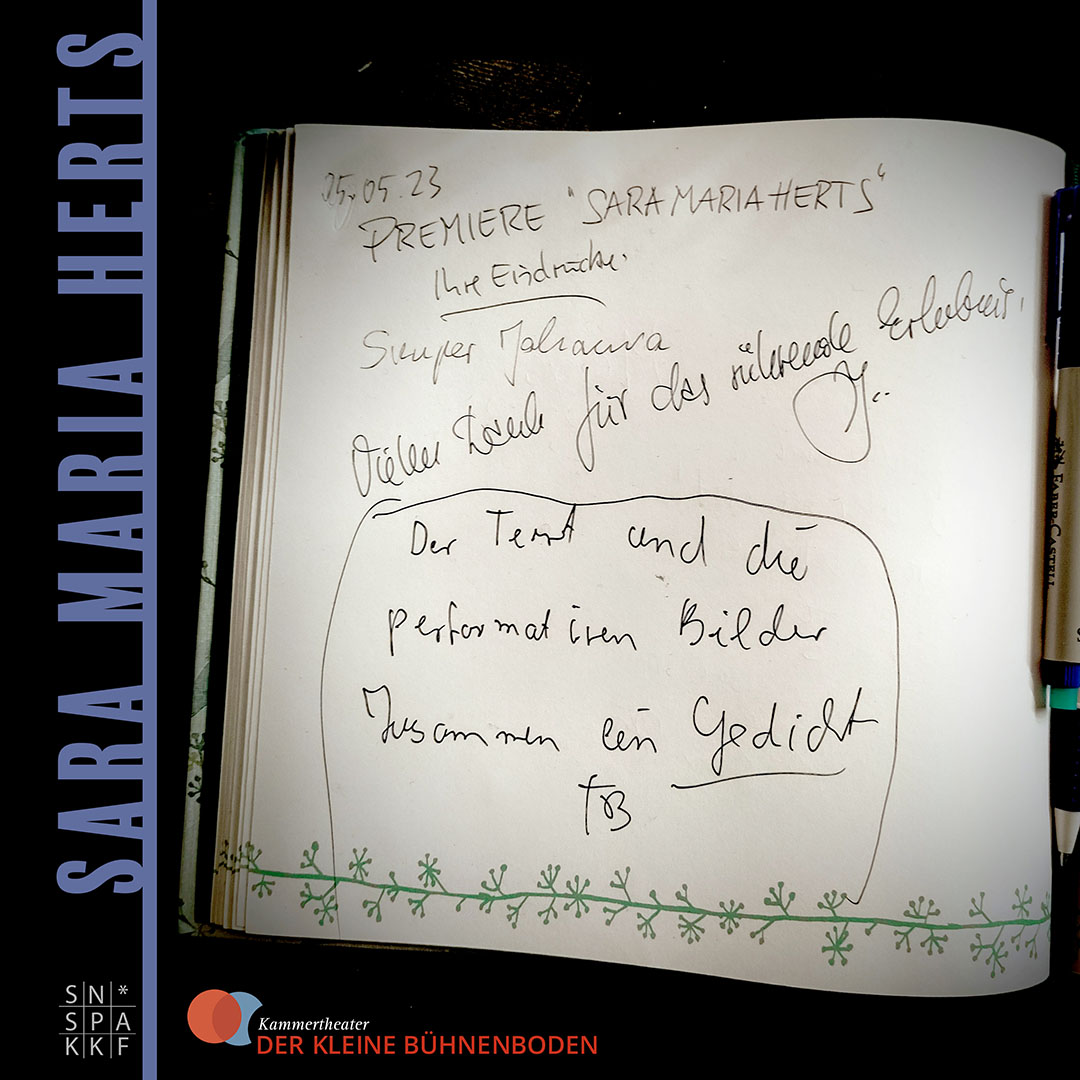 SARA MARIA HERTS
25.05.23
PREMIERE "SARA MARIA HERTS"
Ihre Eindrücke.
Super
Vielen Dank für das rührende Erlebnis.
J..
Der Text und die
performativen Bilder
Zusammen ein Gedicht
TB
FABER-CASTELL
S N *
S P A
K K F
Kammertheater
DER KLEINE BÜHNENBODEN